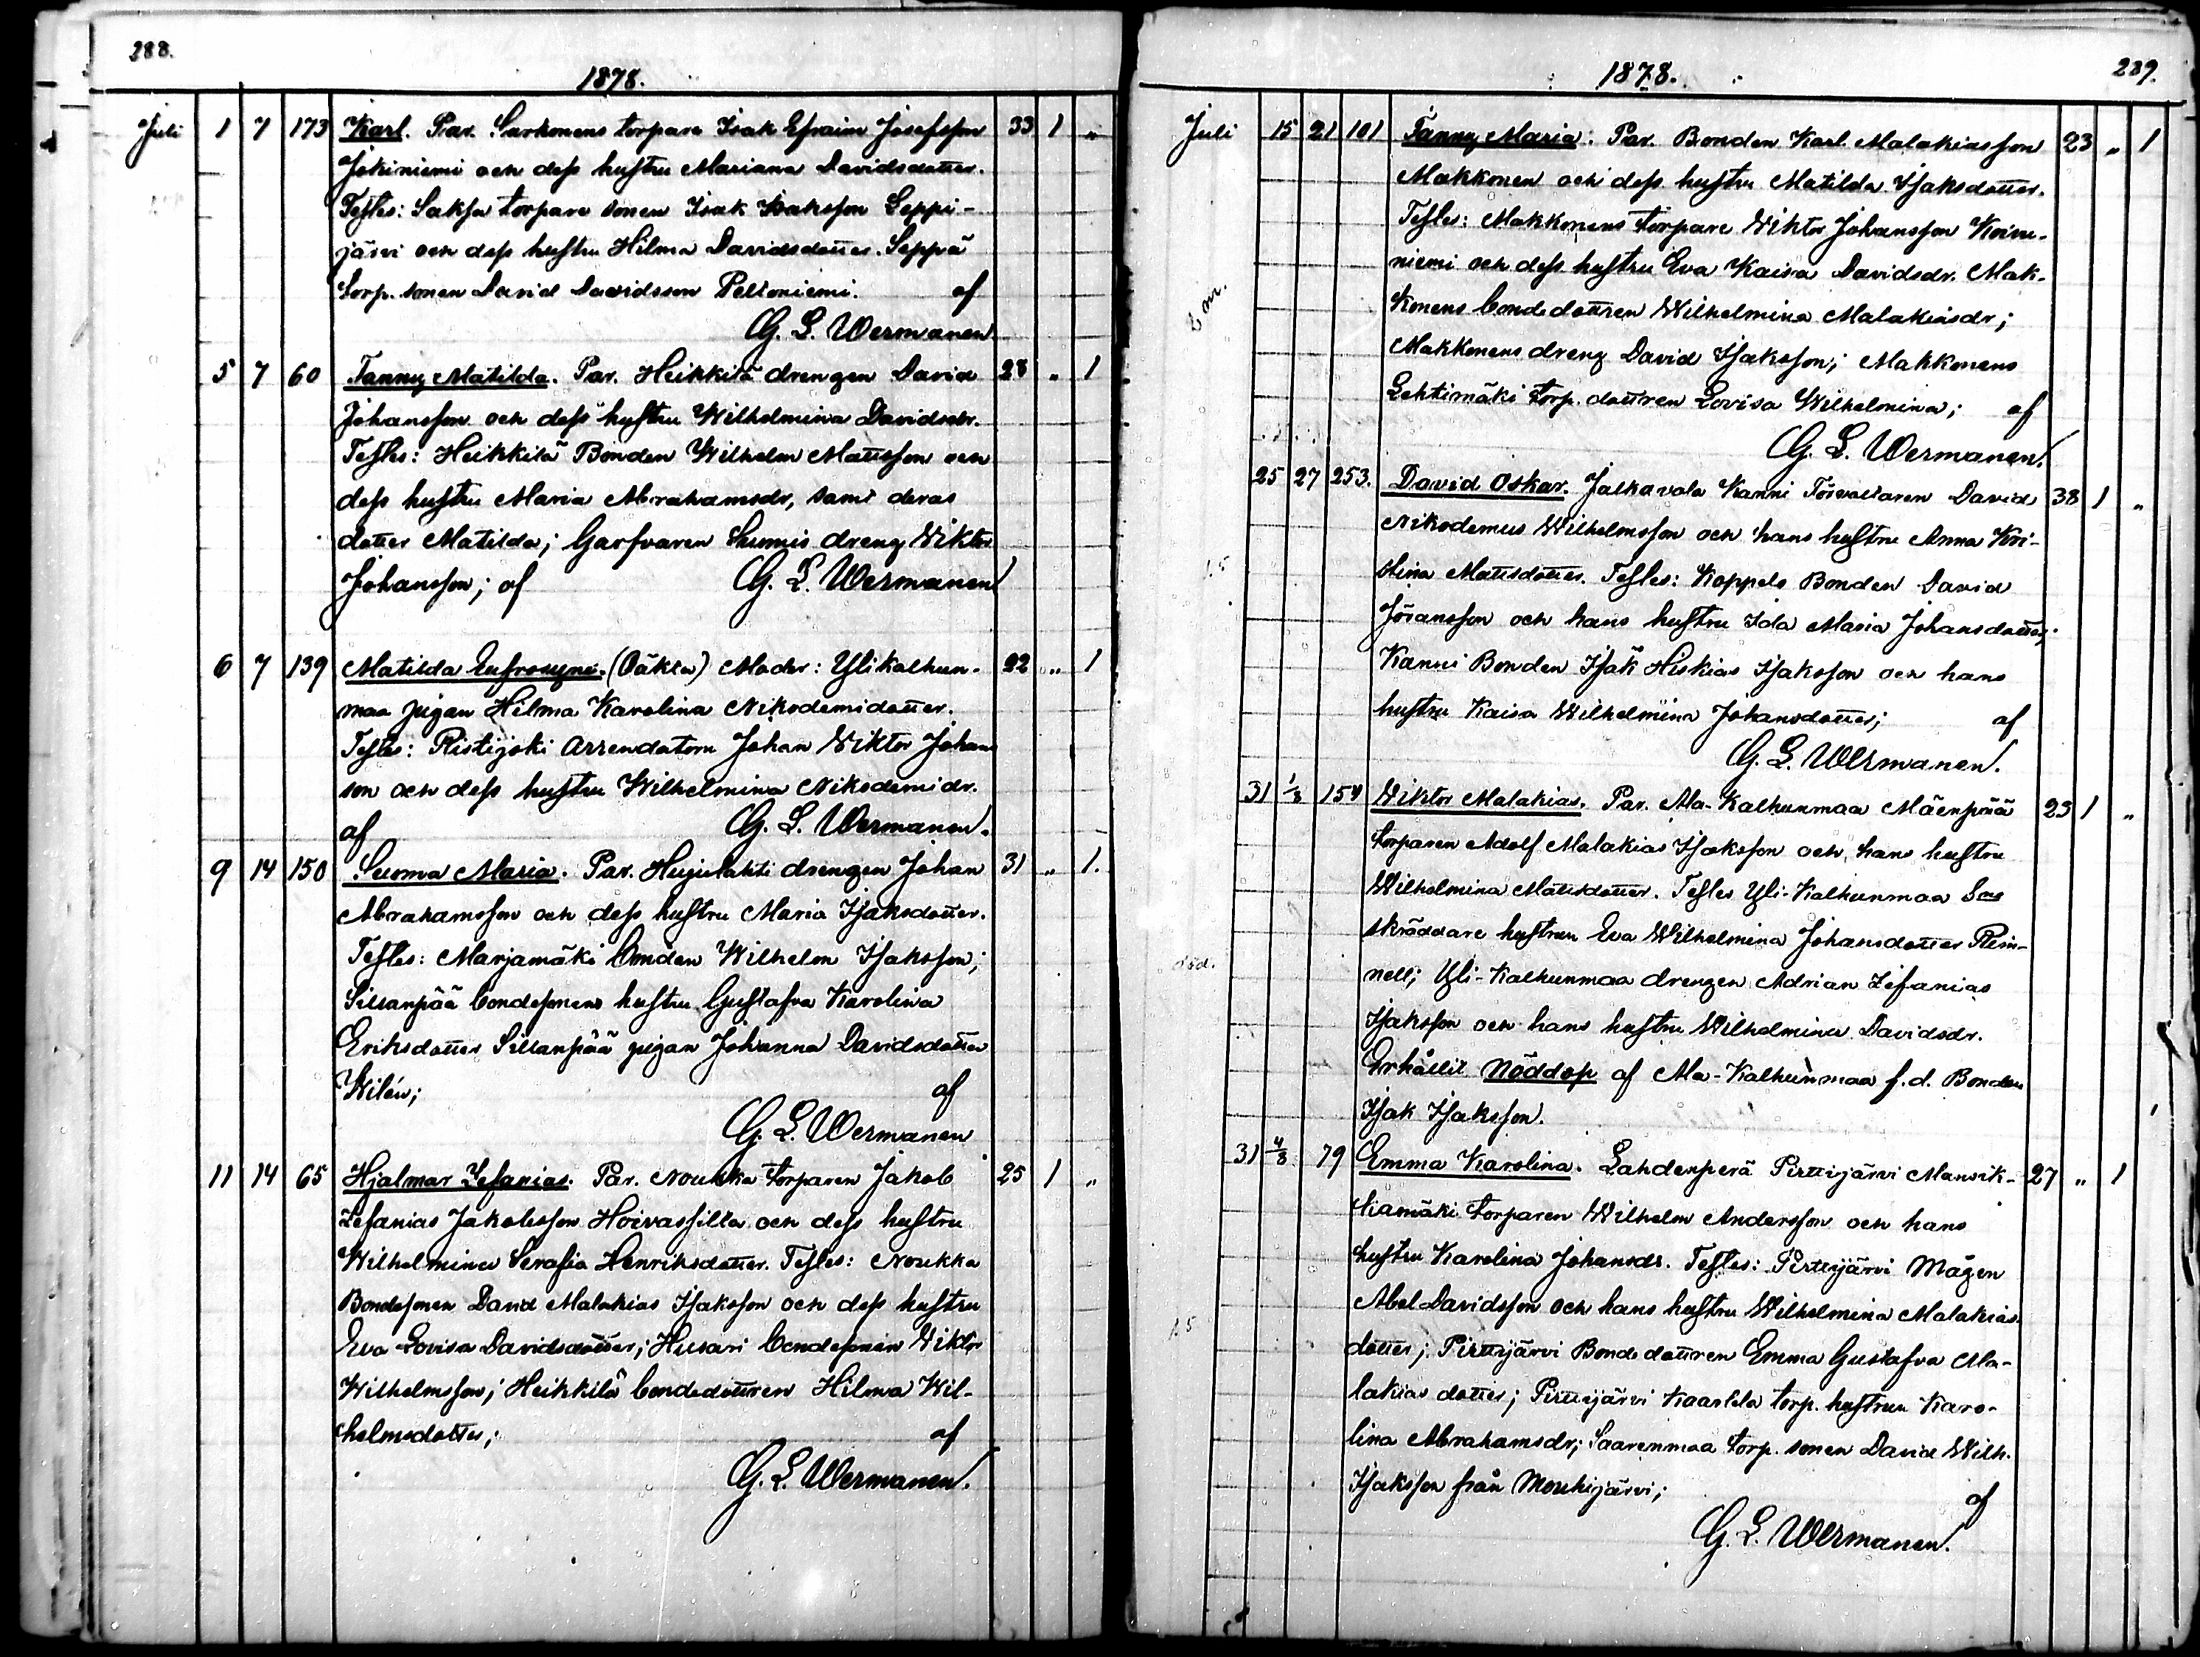 288.
1878.
Juli 1 7 173 Karl. Par. Sarkonens torpare Isak Efraim Josefsson 33 1 "
Jokiniemi och dess hustru Mariana Davidsdotter.
Testes: Saksa torpare sonen Isak Isaksson Leppi-
järvi och dess hustru Hilma Davidsdotter. Seppä
torp. sonen David Davidsson Peltoniemi. af
G. L. Wermanen
5 7 60 Fanny Matilda. Par. Heikkilä drengen David 28 " 1
Johansson och dess hustru Wilhelmina Davidsdr.
Testes: Heikkilä Bonden Wilhelm Mattsson och
dess hustru Maria Abrahamsdr, samt deras
dotter Matilda; Garfvaren dreng Wiktor
Johansson; af G. L. Wermanen
6 7 139 Matilda Eufrosyne. (Oäkta) Moder: Ylikalhun- 22 " 1
maa pigan Hilma Karolina Nikodemidotter.
Testes: Ristijoki Arrendatorn Johan Wiktor Johans
son och dess hustru Wilhelmina Nikodemidr.
af G. L. Wermanen.
9 14 150 Suoma Maria. Par. Hujulahti drengen Johan 31 " 1.
Abrahamsson och dess hustru Maria Isaksdotter.
Testes: Marjamäki bonden Wilhelm Isaksson;
Sillanpää bondesonens hustru Gustafva Karolina
Eriksdotter Sillanpää pigan Johanna Davidsdotter
Wilén; af
G. L. Wermanen
11 14 65 Hjalmar Zefanias. Par. Noukka torparen Jakob 25 1 "
Zefanias Jakobsson Hoivassilta och dess hustru
Wilhelmina Serafia Henriksdotter. Testes: Noukka
Bondesonen David Malakias Isaksson och dess hustru
Eva Lovisa Davidsdotter; Husari bondesonen Viktor
Wilhelmsson; Heikkilä bondedottren Hilma Wil-
helmsdotter; af
G. L. Wermanen.
1878.
289.
Juli 15 21 101 Fanny Maria. Par. Bonden Karl Malakiasson 23 " 1
Makkonen och dess hustru Matilda Isaksdotter.
Testes: Makkonens torpare Wiktor Johansson Koivu-
niemi och dess hustru Eva Kaisa Davidsdr. Mak-
konens bondedottren Wilhelmina Malakiasdr;
Makkonens dreng David Isaksson; Makkonens
Lehtimäki torp. dottren Lovisa Wilhelmina; af
G. L. Wermanen.
25 27 253. David Oskar. Jalkavala Kanni Förvaltaren David 38 1 "
Nikodemus Wilhelmsson och hans hustru Anna Kri-
stina Mattsdotter. Testes: Koppelo Bonden David
Göransson och hans hustru Ida Maria Johansdotter;
Kanni Bonden Isak Hiskias Isaksson och hans
hustru Kaisa Wilhelmina Johansdotter; af
G. L. Wermanen.
31 1/8 154 Wiktor Malakias. Par. Ala-Kalhunmaa Mäenpää 23 1 "
torparen Adolf Malakias Isaksson och hans hustru
Wilhelmina Mattsdotter. Testes Yli-Kalhunmaa
skräddare hustrun Eva Wilhelmina Johansdotter Rein-
nell; Yli-Kalhunmaa drengen Adrian Zefanias
Isaksson och hans hustru Wilhelmina Davidsdr.
död.
Erhållit Nöddop af Ala-Kalhunmaa f.d. Bonden
Isak Isaksson.
31 4/8 79 Emma Karolina. Lahdenperä Pirttijärvi Mansik- 27 " 1
kamäki torparen Wilhelm Andersson och hans
hustru Karolina Johansdr. Testes: Pirttijärvi Mågen
Abel Davidsson och hans hustru Wilhelmina Malakias
dotter; Pirttijärvi Bondedottren Emma Gustafva Ma-
lakias dotter; Pirttijärvi Kaarlela torp. hustrun Karo-
lina Abrahamsdr; Saarenmaa torp. sonen David Wilh.
Isaksson från Mouhijärvi; af
G. L. Wermanen.